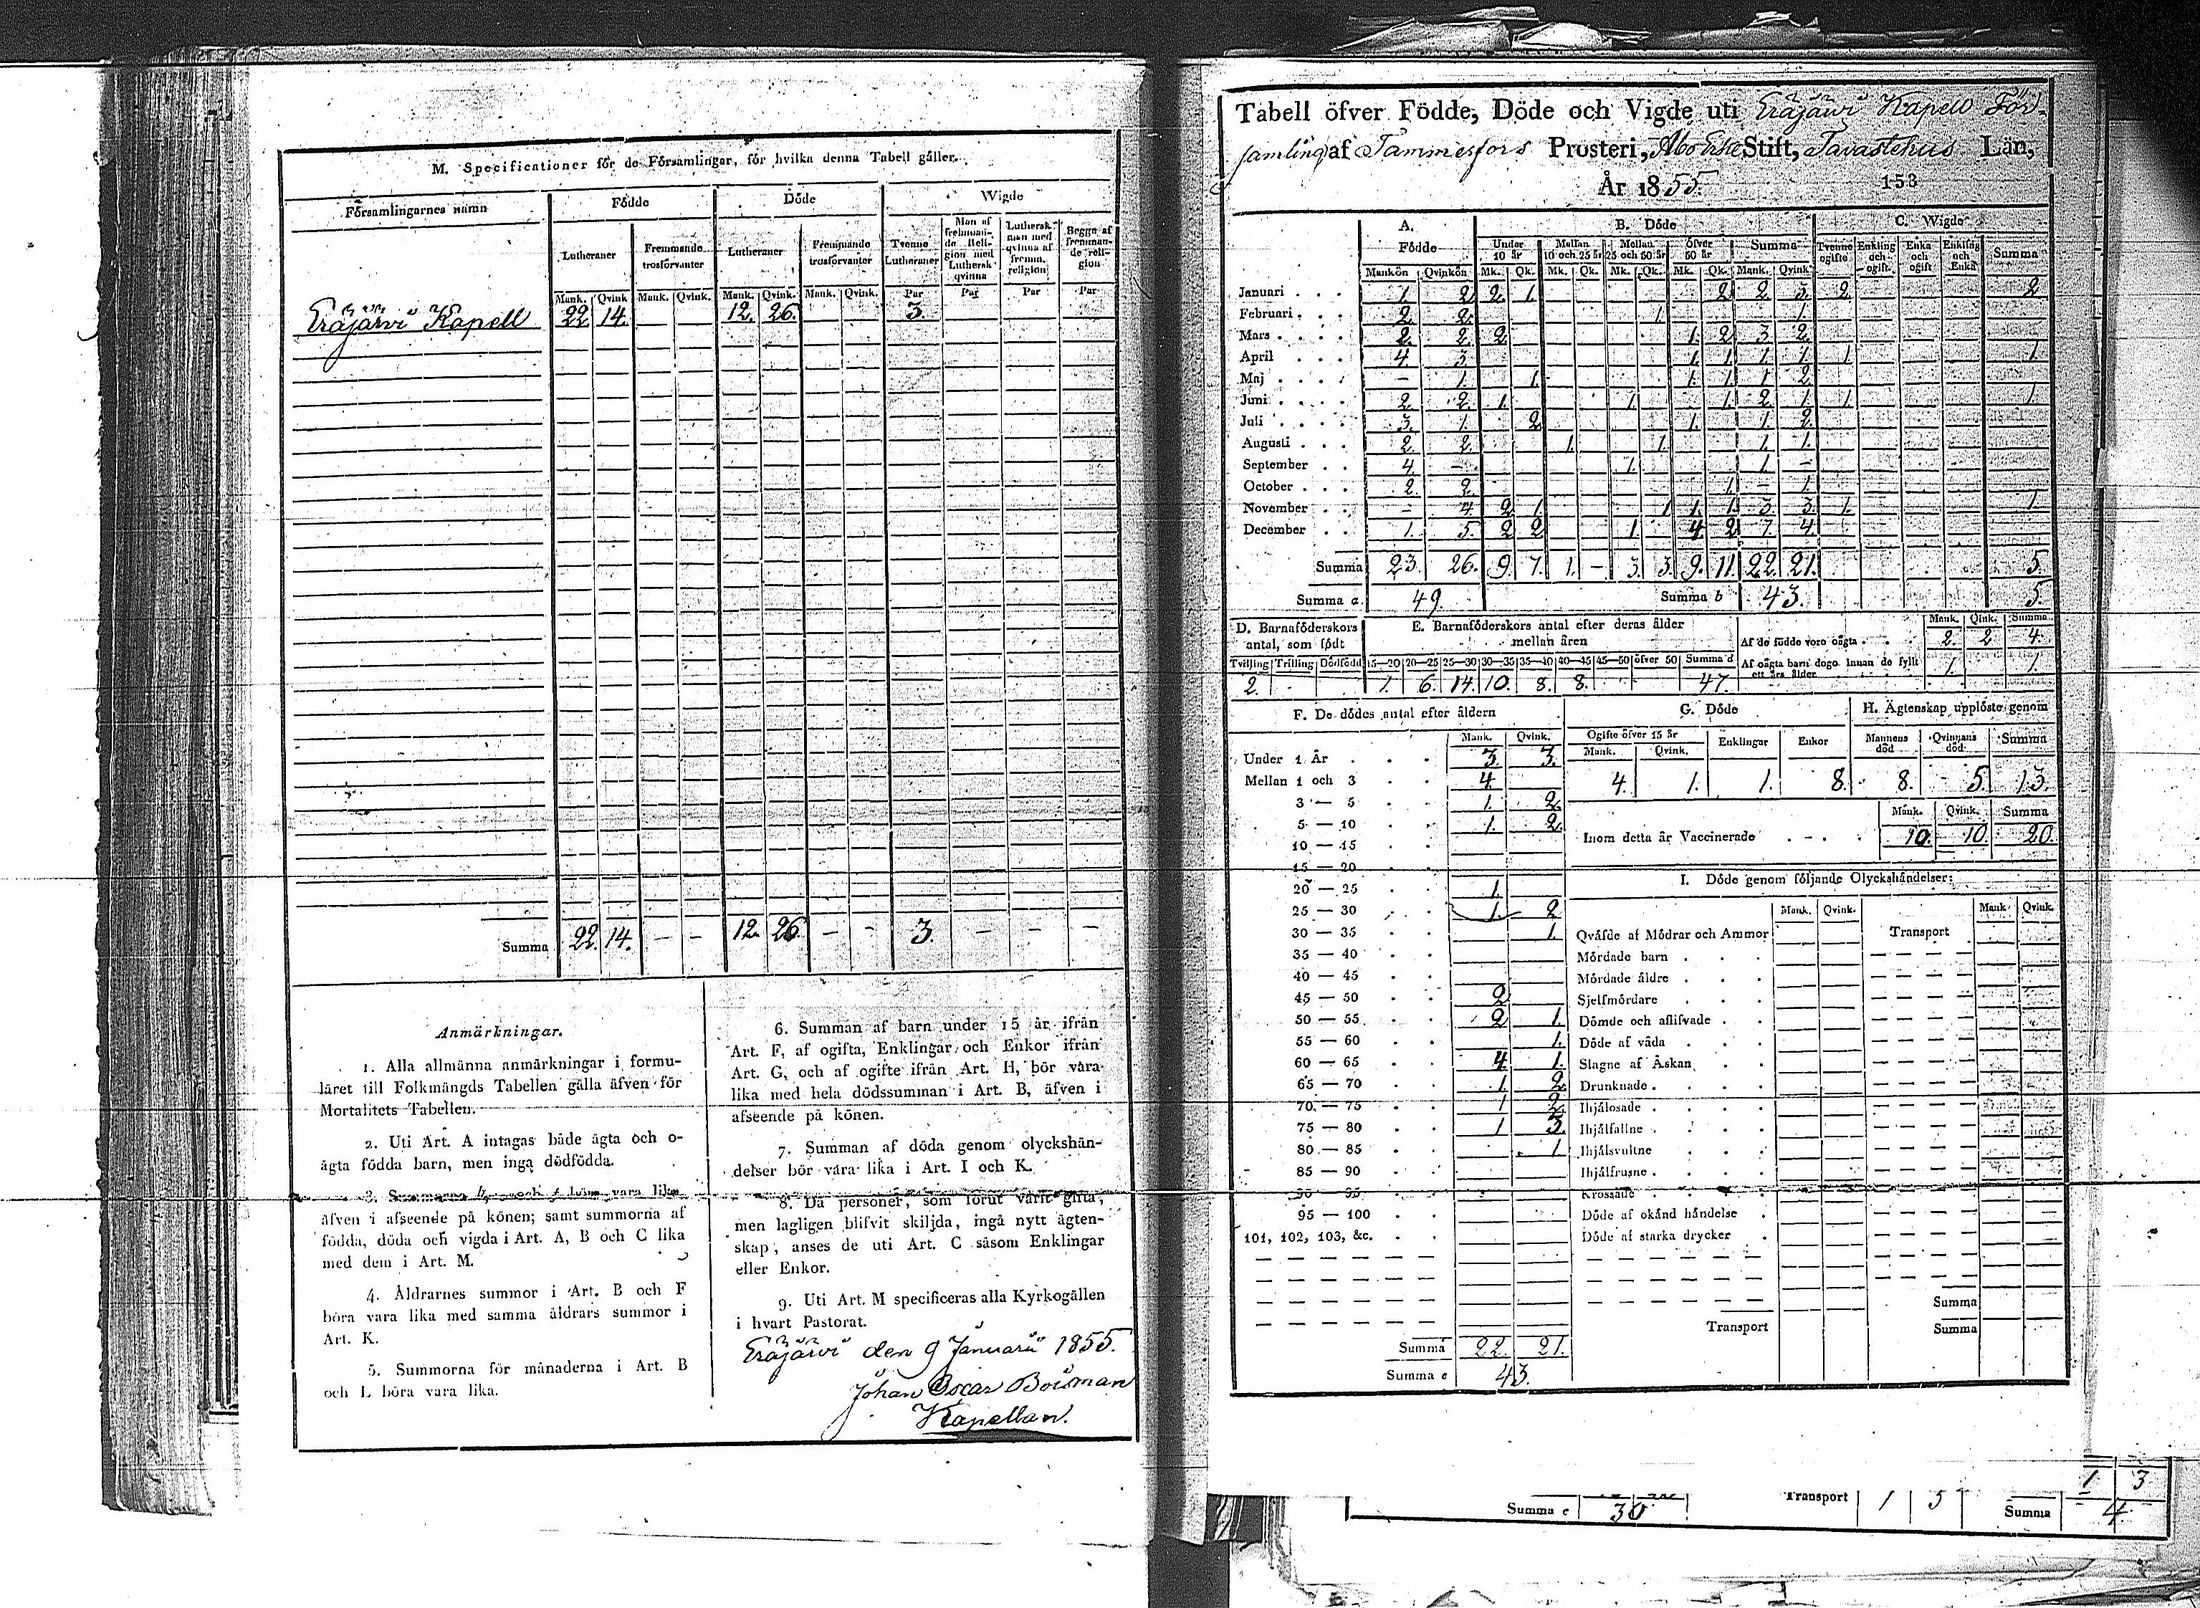 M. Specificationer för de Församlingar, för hvilka denna Tabell gäller.
Församlingarnes namn | Födde | Döde | Wigde
Lutheraner | Fremmande trosförvanter | Lutheraner | Fremmande trosförvanter | Tvenne Lutheraner | Man af fremmande Religion med Luthersk qvinna | Luthersk man med qvinna af fremm. religion | Begge af fremmande religion
Mank. | Qvink | Mank. | Qvink. | Mank. | Qvink. | Mank. | Qvink. | Par | Par | Par | Par
Eräjärvi Kapell 22 14. 12. 26. 3.
Summa 22. 14. – – 12. 26 – – 3. – – –
Anmärkningar.
1. Alla allmänna anmärkningar i formu-
läret till Folkmängds Tabellen gälla äfven för
Mortalitets Tabellen.
2. Uti Art. A intagas både ägta och o-
ägta födda barn, men inga dödfödda.
vara lika
äfven i afseende på könen; samt summorna af
födda, döda och vigda i Art. A, B och C lika
med dem i Art. M.
4. Åldrarnes summor i Art. B och F
böra vara lika med samma åldrars summor i
Art. K.
5. Summorna för månaderna i Art. B
och L böra vara lika.
6. Summan af barn under 15 år ifrån
Art. F, af ogifta, Enklingar och Enkor ifrån
Art. G, och af ogifte ifrån Art. H, bör vara
lika med hela dödssumman i Art. B, äfven i
afseende på könen.
7. Summan af döda genom olyckshän-
delser bör vara lika i Art. I och K.
8. Då personer, som förut varit gifta,
men lagligen blifvit skiljda, ingå nytt ägten-
skap, anses de uti Art. C såsom Enklingar
eller Enkor.
9. Uti Art. M specificeras alla Kyrkogällen
i hvart Pastorat.
Eräjärvi den 9 Januarii 1855.
Johan Oscar Boisman
Kapellan.
Tabell öfver Födde, Döde och Vigde uti Eräjärvi Kapell För-
samling af Tammerfors Prosteri, Åbo Erke Stift, Tavastehus Län,
År 1855. 153
A. Födde | B. Döde | C. Wigde
Under 10 år | Mellan 10 och 25 år | Mellan 25 och 50 år | Öfver 50 år | Summa | Tvenne ogifte | Enkling och ogift. | Enka och ogift | Enkling och Enka | Summa
Mankön | Qvinkön | Mk. | Qk. | Mk. | Qk. | Mk. | Qk. | Mk. | Qk. | Mank. | Qvink.
Januari 1. 2. 2. 1. 2 2. 3. 2. 2
Februari 2. 2. 1. 1.
Mars 2. 2. 2. 1. 2 3 2.
April 4. 3. 1. 1. 1. 1. 1. 1.
Maj – 1. 1. 1. 1. 1. 2.
Juni 2. 2. 1. 1. 1. 2. 1. 1. 1.
Juli 3. 1. 2. 1. 1. 2.
Augusti 2. 2. 1. 1. 1. 1.
September 4. – 1. 1. –
October 2. 2. 1. – 1.
November – 4. 2. 1. 1. 1. 1. 3. 3. 1. 1.
December 1. 5. 2 2. 1. 4. 2. 7. 4.
Summa 23. 26. 9. 7. 1. – 3. 3. 9. 11. 22. 21. 5.
Summa a 49. Summa b 43. 5.
D. Barnaföderskors antal, som födt | E. Barnaföderskors antal efter deras ålder mellan åren
Tvilling | Trilling | Dödfödd | 15—20 | 20—25 | 25—30 | 30—35 | 35—40 | 40—45 | 45—50 | öfver 50 | Summa d
2. 1. 6. 14. 10. 8. 8. 47.
Mank. | Qink. | Summa
Af de födde voro oägta 2. 2. 4.
Af oägta barn dogo innan de fyllt ett års ålder 1. 1.
F. De dödes antal efter åldern
Mank. | Qvink.
Under 1 År 3. 3.
Mellan 1 och 3 4.
3 — 5 1. 2.
5 — 10 1. 2.
10 — 15
15 — 20
20 — 25 1.
25 — 30 1. 2
30 — 35 1.
35 — 40
40 — 45
45 — 50 2.
50 — 55 2 1.
55 — 60 1.
60 — 65 4. 1.
65 — 70 1. 2.
70 — 75 1 2.
75 — 80 1 3.
80 — 85 1
85 — 90
90 — 95
95 — 100
101, 102, 103, &c.
Summa 22. 21.
Summa e 43.
G. Döde | H. Ägtenskap upplöste genom
Ogifte öfver 15 år | Enklingar | Enkor | Mannens död | Qvinnans död | Summa
Mank. | Qvink.
4. 1. 1. 8. 8. 5. 13.
Mank. | Qvink. | Summa
Inom detta år Vaccinerade 10. 10. 20.
I. Döde genom följande Olyckshändelser:
Mank. | Qvink. | Mank. | Qvink.
Qväfde af Mödrar och Ammor | Transport
Mördade barn
Mördade äldre
Sjelfmördare
Dömde och aflifvade
Döde af våda
Slagne af Åskan
Drunknade
Ihjälosade
Ihjälfallne
Ihjälsvultne
Ihjälfrusne
Krossade
Döde af okänd händelse
Döde af starka drycker
Summa
Transport | Summa
1. 3
Summa e 30 Transport 1 5 Summa 4.